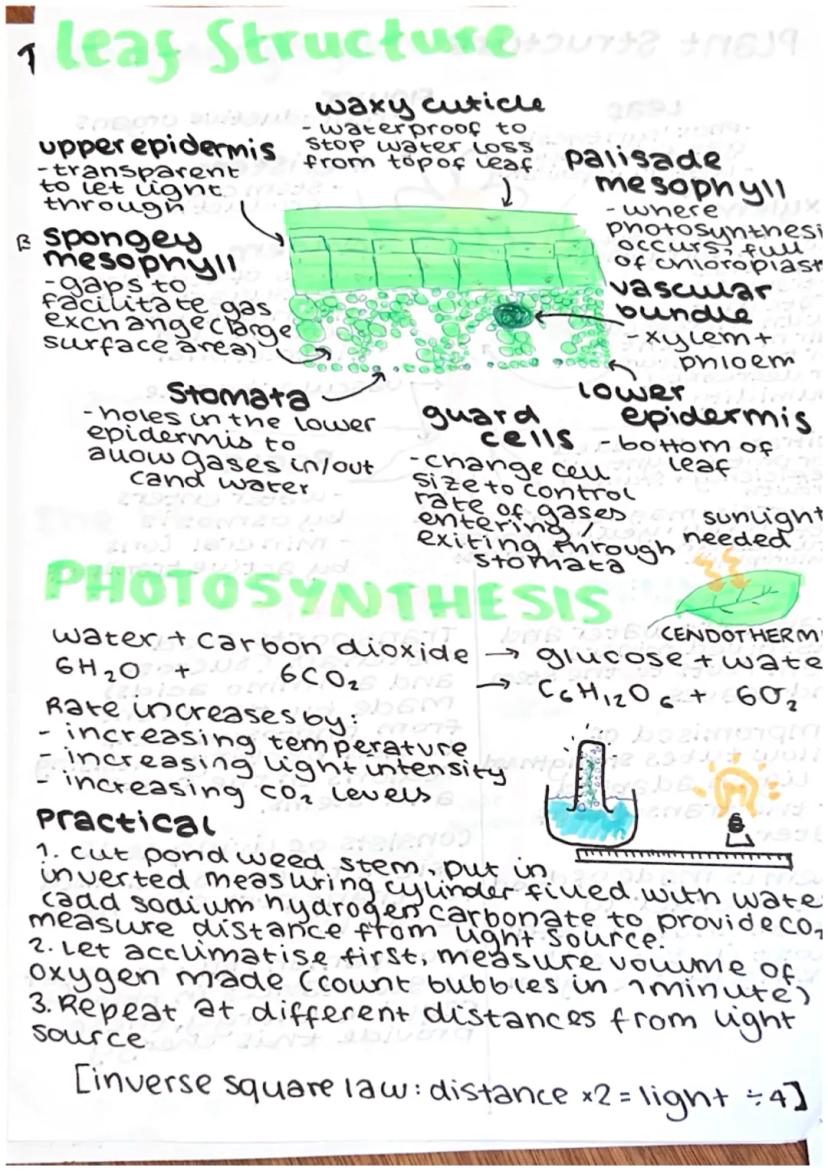 Leaf Structure
waxy cuticle
- waterproof to
stop water loss
from top of leaf
upper epidermis
- transparent
to let light
through
palisade
mesophyll
- where
photosynthesi
occurs, full
of chloroplast
spongey
mesophyll
- gaps to
facilitate gas
exchange (large
surface area)
vascular
bundle
- xylem +
phloem
Stomata
- holes in the lower
epidermis to
allow gases in/out
(and water
guard
cells
- change cell
size to control
rate of gases
entering /
exiting through
stomata
lower
epidermis
- bottom of
leaf
sunlight
needed
PHOTOSYNTHESIS
(ENDOTHERM
water + carbon dioxide → glucose + wate
6H₂O + 6CO₂ → C₆H₁₂O₆ + 6O₂
Rate increases by:
- increasing temperature
- increasing light intensity
- increasing CO₂ levels
Practical
1. cut pond weed stem, put in
inverted measuring cylinder filled with wate
(add sodium hydrogen carbonate to provide CO₂
measure distance from light source.
2. Let acclimatise first, measure volume of
oxygen made (count bubbles in 1 minute)
3. Repeat at different distances from light
source
[inverse square law: distance ×2 = light ÷4]